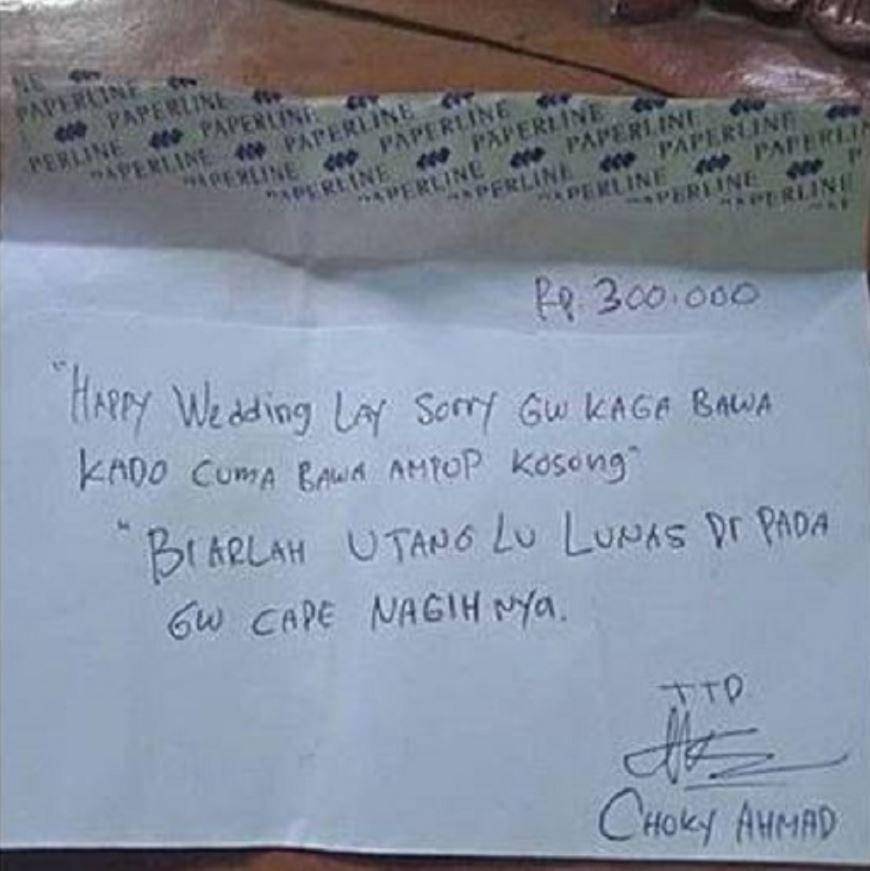 PAPERLINE PAPERLINE PAPERLINE PAPERLINE PAPERLINE PAPERLINE PAPERLINE PAPERLINE
PAPERLINE PAPERLINE PAPERLINE PAPERLINE PAPERLINE PAPERLINE PAPERLINE
Rp. 300.000
"HAPPY Wedding LAY SORRY GW KAGA BAWA
KADO CUMA BAWA AMPOP Kosong"
"BIARLAH UTANG LU LUNAS DI PADA
GW CAPE NAGIH NYA.
TTD
CHOKY AHMAD